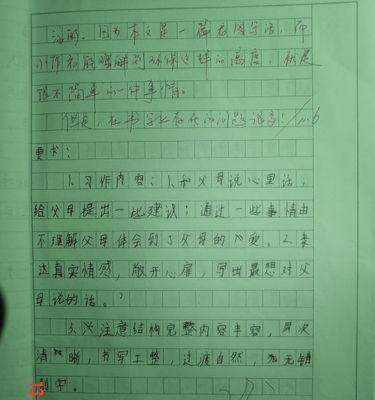 因为本文是一篇看图写话，而
小作者能理解到环保这样的高度，就是
很不简单的一件事情。
但是，在书写上存在的问题很多！
要求：
1. 习作内容：1. 和父母说心里话；
给父母提出一些建议；通过一些事情由
不理解父母体会到了父母的爱。2. 表
达真实情感，敞开心扉，写出最想对父
母说的话。
3. 注意结构完整内容丰容，层次
清晰，书写工整，过渡自然，无错
别字。